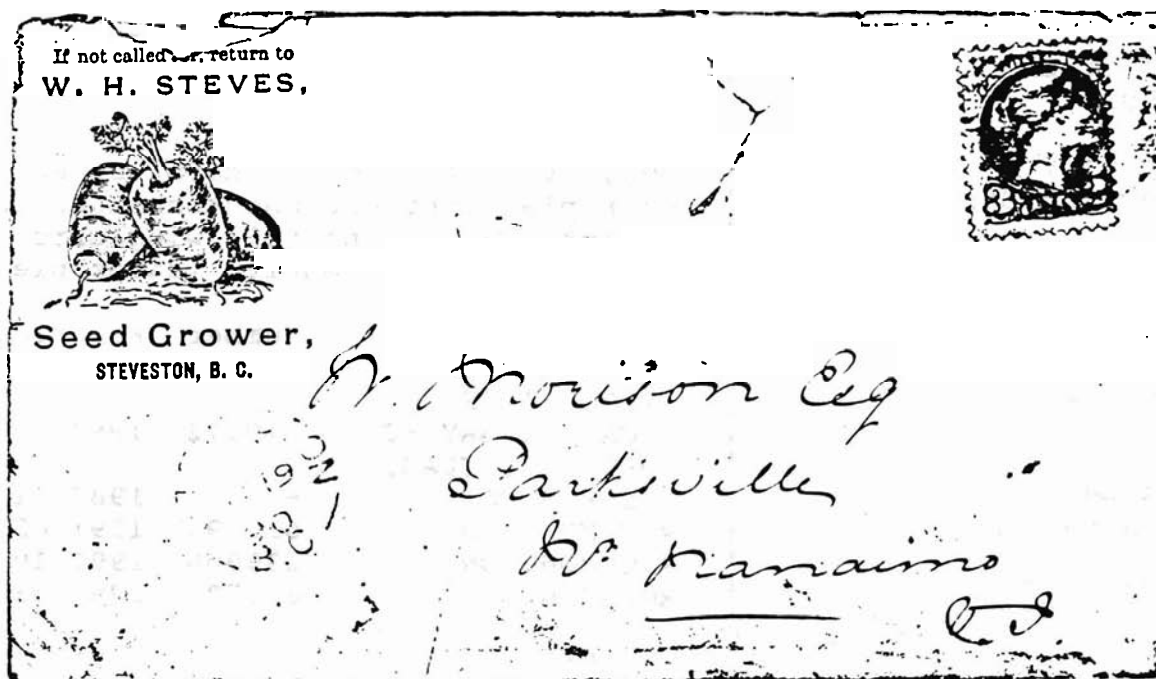 If not called for, return to
W. H. STEVES,
Seed Grower,
STEVESTON, B. C.
Morison Esq
Parksville
Nr Nanaimo
V.I.
ON
19
B.C
3